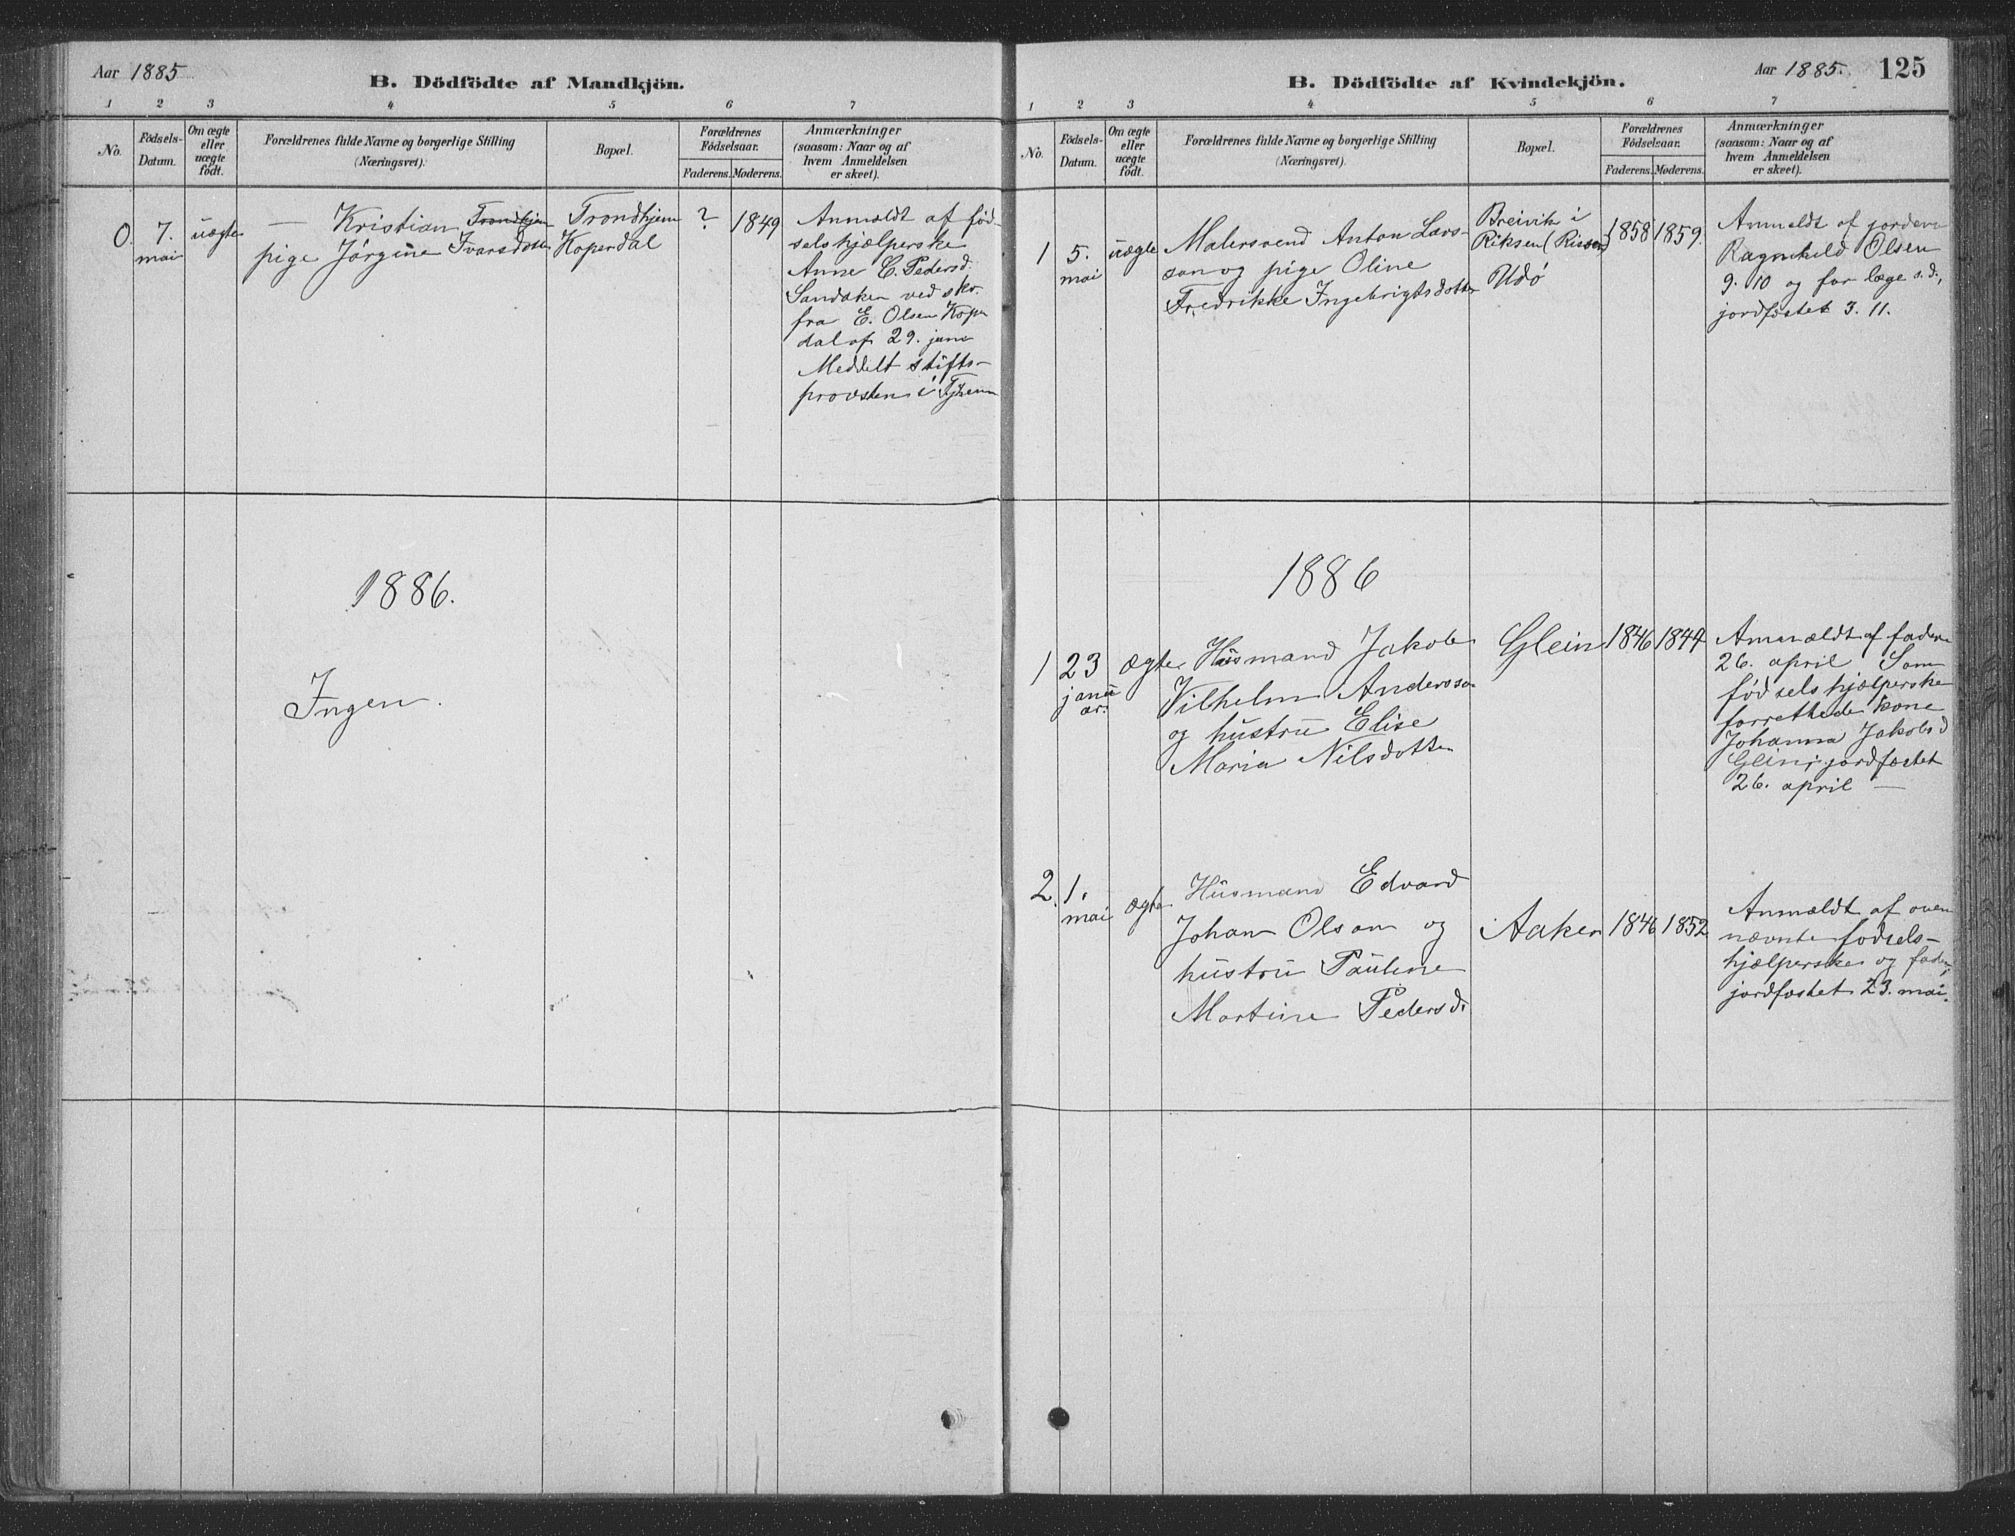 Aar 1885
B. Dödfödte af Mandkjön.
1 2 3 4 5 6 7
No.
Födsels-
Datum.
Om ægte
eller
uægte
födt.
Forældrenes fulde Navne og borgerlige Stilling
(Næringsvei).
Bopæl.
Forældrenes
Födselsaar.
Faderens. Moderens.
Anmærkninger
(saasom: Naar og af
hvem Anmeldelsen
er skeet).
0.
7.
mai
uægte
— Kristian Trondhjem
pige Jørgine Ivarsdotter
Trondhjem
Koperdal
?
1849
Anmældt af fød-
selshjælperske
Anne C. Pedersd.
Sandaker ved skr.
fra E. Olsen Koper
dal af 29. juni
Meddelt stifts-
provsten i Tjhem
1886.
Ingen.
Aar 1885. 125
B. Dödfödte af Kvindekjön.
1 2 3 4 5 6 7
No.
Födsels-
Datum.
Om ægte
eller
uægte
födt.
Forældrenes fulde Navne og borgerlige Stilling
(Næringsvei).
Bopæl.
Forældrenes
Födselsaar.
Faderens. Moderens.
Anmærkninger
(saasom: Naar og af
hvem Anmeldelsen
er skeet).
1
5.
mai
uægte
Malersvend Anton Lars-
son og pige Oline
Fredrikke Ingebrigtsdotter
Breivik i
Riksen (Rissen)
Udø
1858
1859.
Anmeldt af jordem
Ragnhild Olsen
9. 10 og før læge s. d.,
jordfæstet 3. 11.
1886
1
23
janu
ar.
ægte
Husmand Jakob
Vilhelm Anderssøn
og hustru Elise
Maria Nilsdotter
Glein
1846
1844
Anmældt af fader
26. april Som
fødselshjælperske
forrettede kone
Johanna Jakobsd
Glein, jordfæstet
26. april —
2.
1.
mai
ægte
Husmand Edvard
Johan Olsen og
hustru Pauline
Martine Pedersd.
Aaker
1846
1852
Anmældt af oven
nævnte fødsels-
hjælperske og fader,
jordfæstet 23. mai.